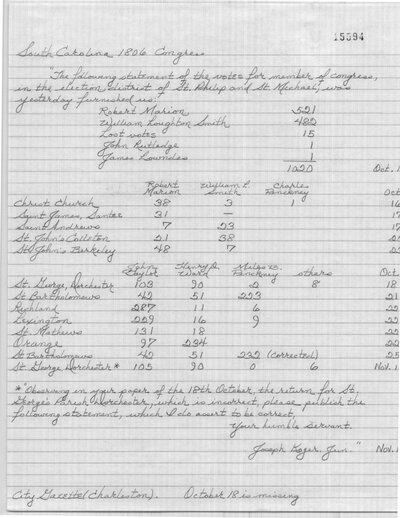 15594
South Carolina 1806 Congress
"The following statement of the votes for member of congress,
in the election district of St. Philip and St. Michael, was
yesterday furnished us:
Robert Marion 521
William Loughton Smith 482
Lost votes 15
John Rutledge 1
James Lowndes 1
1020 Oct. 1
Robert Marion William L. Smith Charles Pinckney Oct
Christ Church 38 3 1 16
Saint James, Santee 31 — 17
Saint Andrews 7 23 17
St. John's Colleton 21 38
St. John's Berkeley 48 7
John Taylor Henry D. Ward Miles B. Pinckney others Oct.
St. George, Dorchester 103 90 2 8 18
St Bartholomews 42 51 223 21
Richland 287 11 6 22
Lexington 229 16 9 22
St. Mathews 131 18 22
Orange 97 234 22
St Bartholomews 42 51 232 (corrected) 25
St. George Dorchester* 105 90 0 6 Nov. 1
*"Observing in your paper of the 18th October, the return for St.
George's Parish Dorchester, which is incorrect, please publish the
following statement, which I do assert to be correct,
Your humble servant.
Joseph Koger, Jun." Nov. 1
City Gazette (Charleston). October 18 is missing